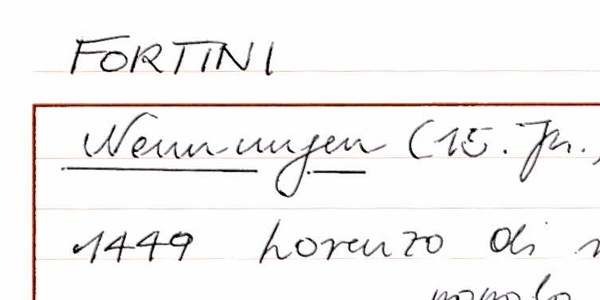 FORTINI
Nennungen (15. Jh.)
1449 Lorenzo di